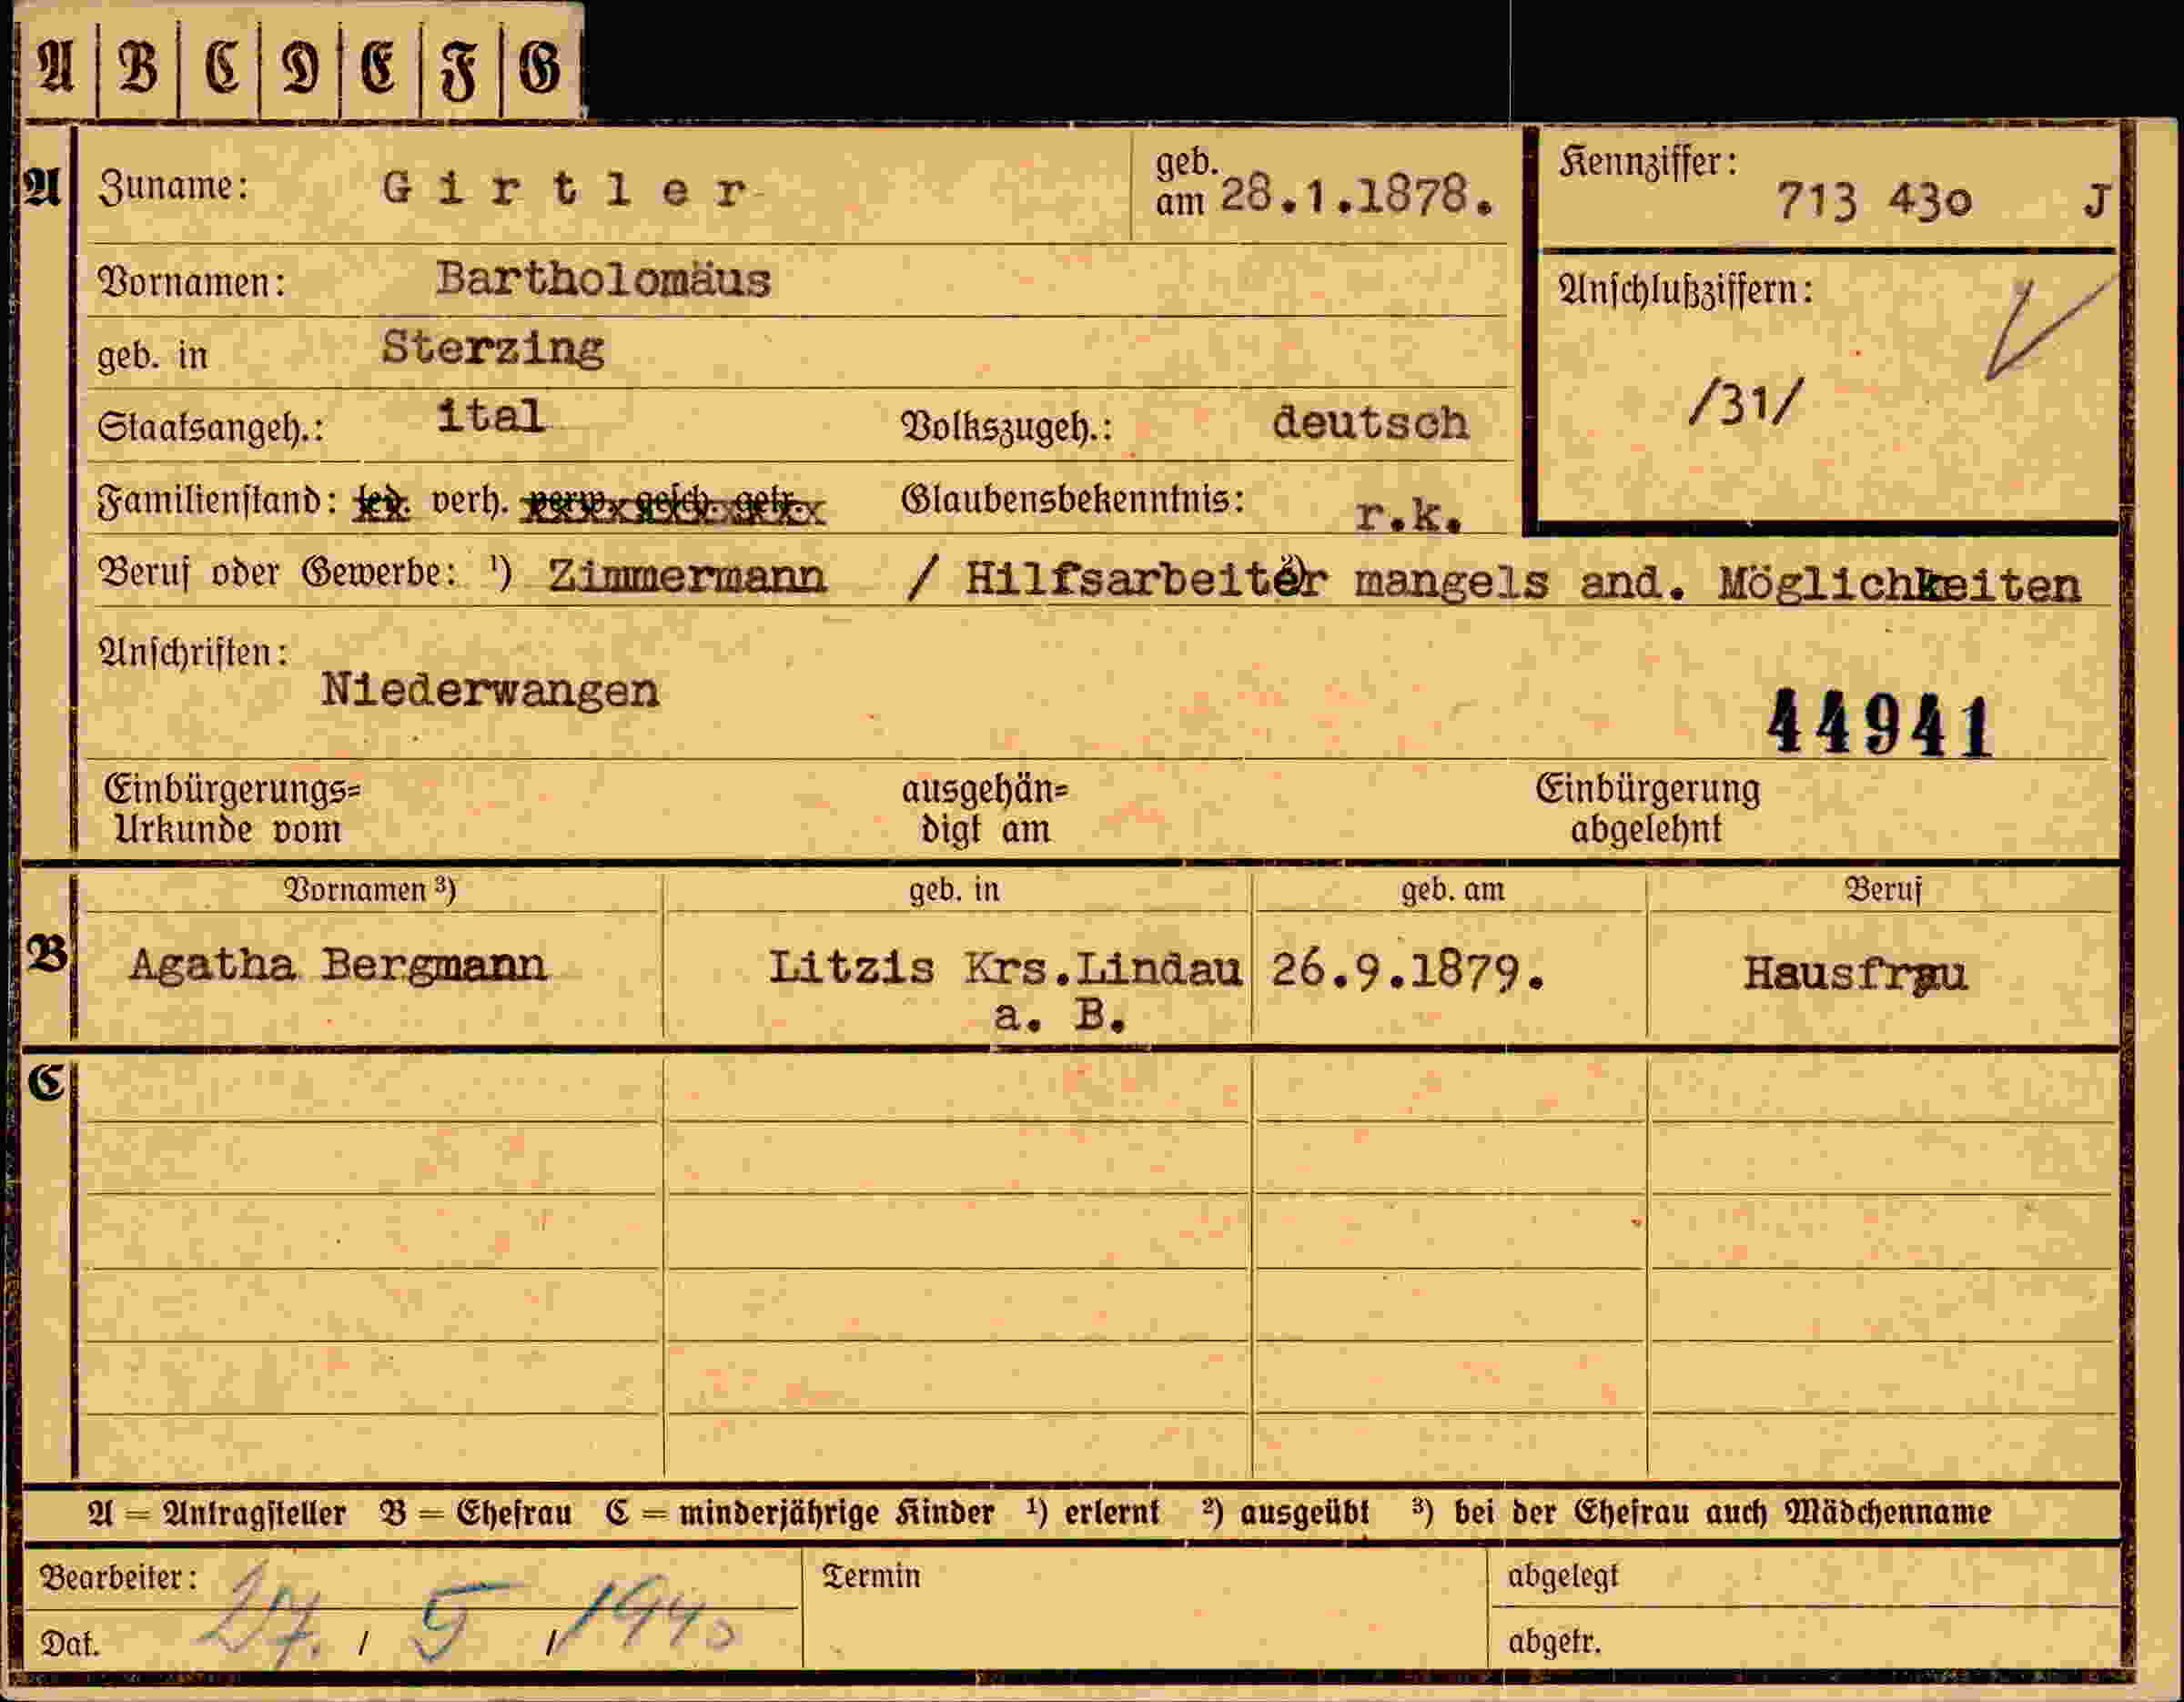 A | B | C | D | E | F | G
A Zuname: Girtler geb. am 28.1.1878. Kennziffer: 713 430 J
Vornamen: Bartholomäus Anschlußziffern:
geb. in Sterzing
Staatsangeh.: ital Volkszugeh.: deutsch /31/
Familienstand: led. verh. verw. gesch. getr. Glaubensbekenntnis: r.k.
Beruf oder Gewerbe: ¹) Zimmermann / Hilfsarbeiter mangels and. Möglichkeiten
Anschriften:
Niederwangen
44941
Einbürgerungs= ausgehän= Einbürgerung
Urkunde vom digt am abgelehnt
Vornamen ³) geb. in geb. am Beruf
B Agatha Bergmann Litzis Krs.Lindau 26.9.1879. Hausfrau
a. B.
C
A = Antragsteller B = Ehefrau C = minderjährige Kinder ¹) erlernt ²) ausgeübt ³) bei der Ehefrau auch Mädchenname
Bearbeiter: Termin abgelegt
Dat. 27. / 5 / 1940 abgetr.